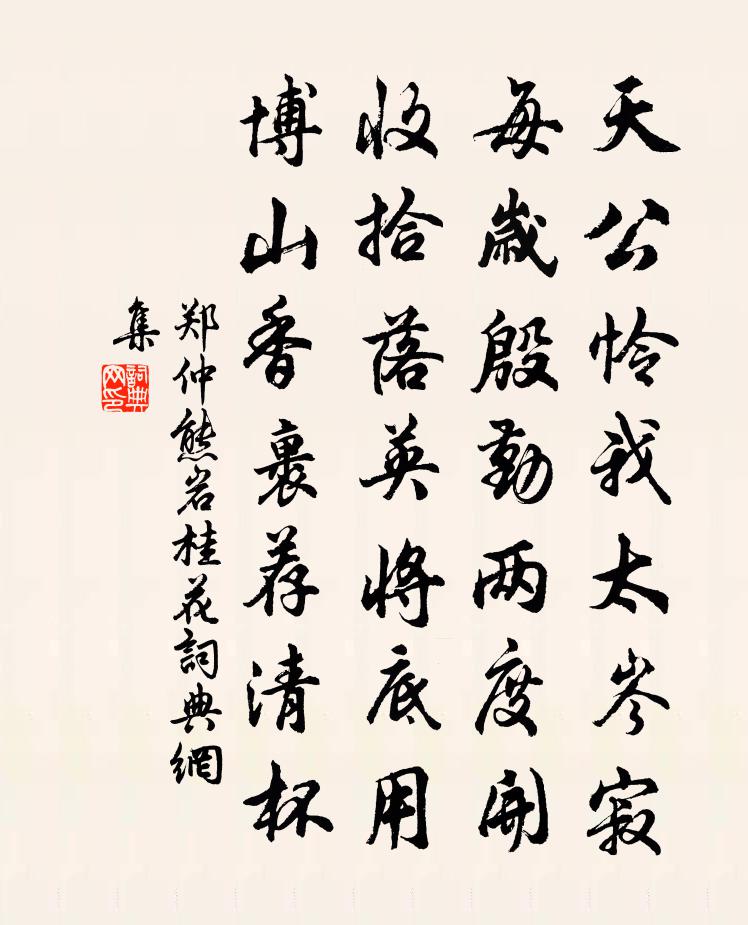 天公怜我太岑寂
每歳殷勤两度開
收拾落英将底用
博山香裹荐清杯
郑仲熊岩桂花詞典網
集
詞典
网印